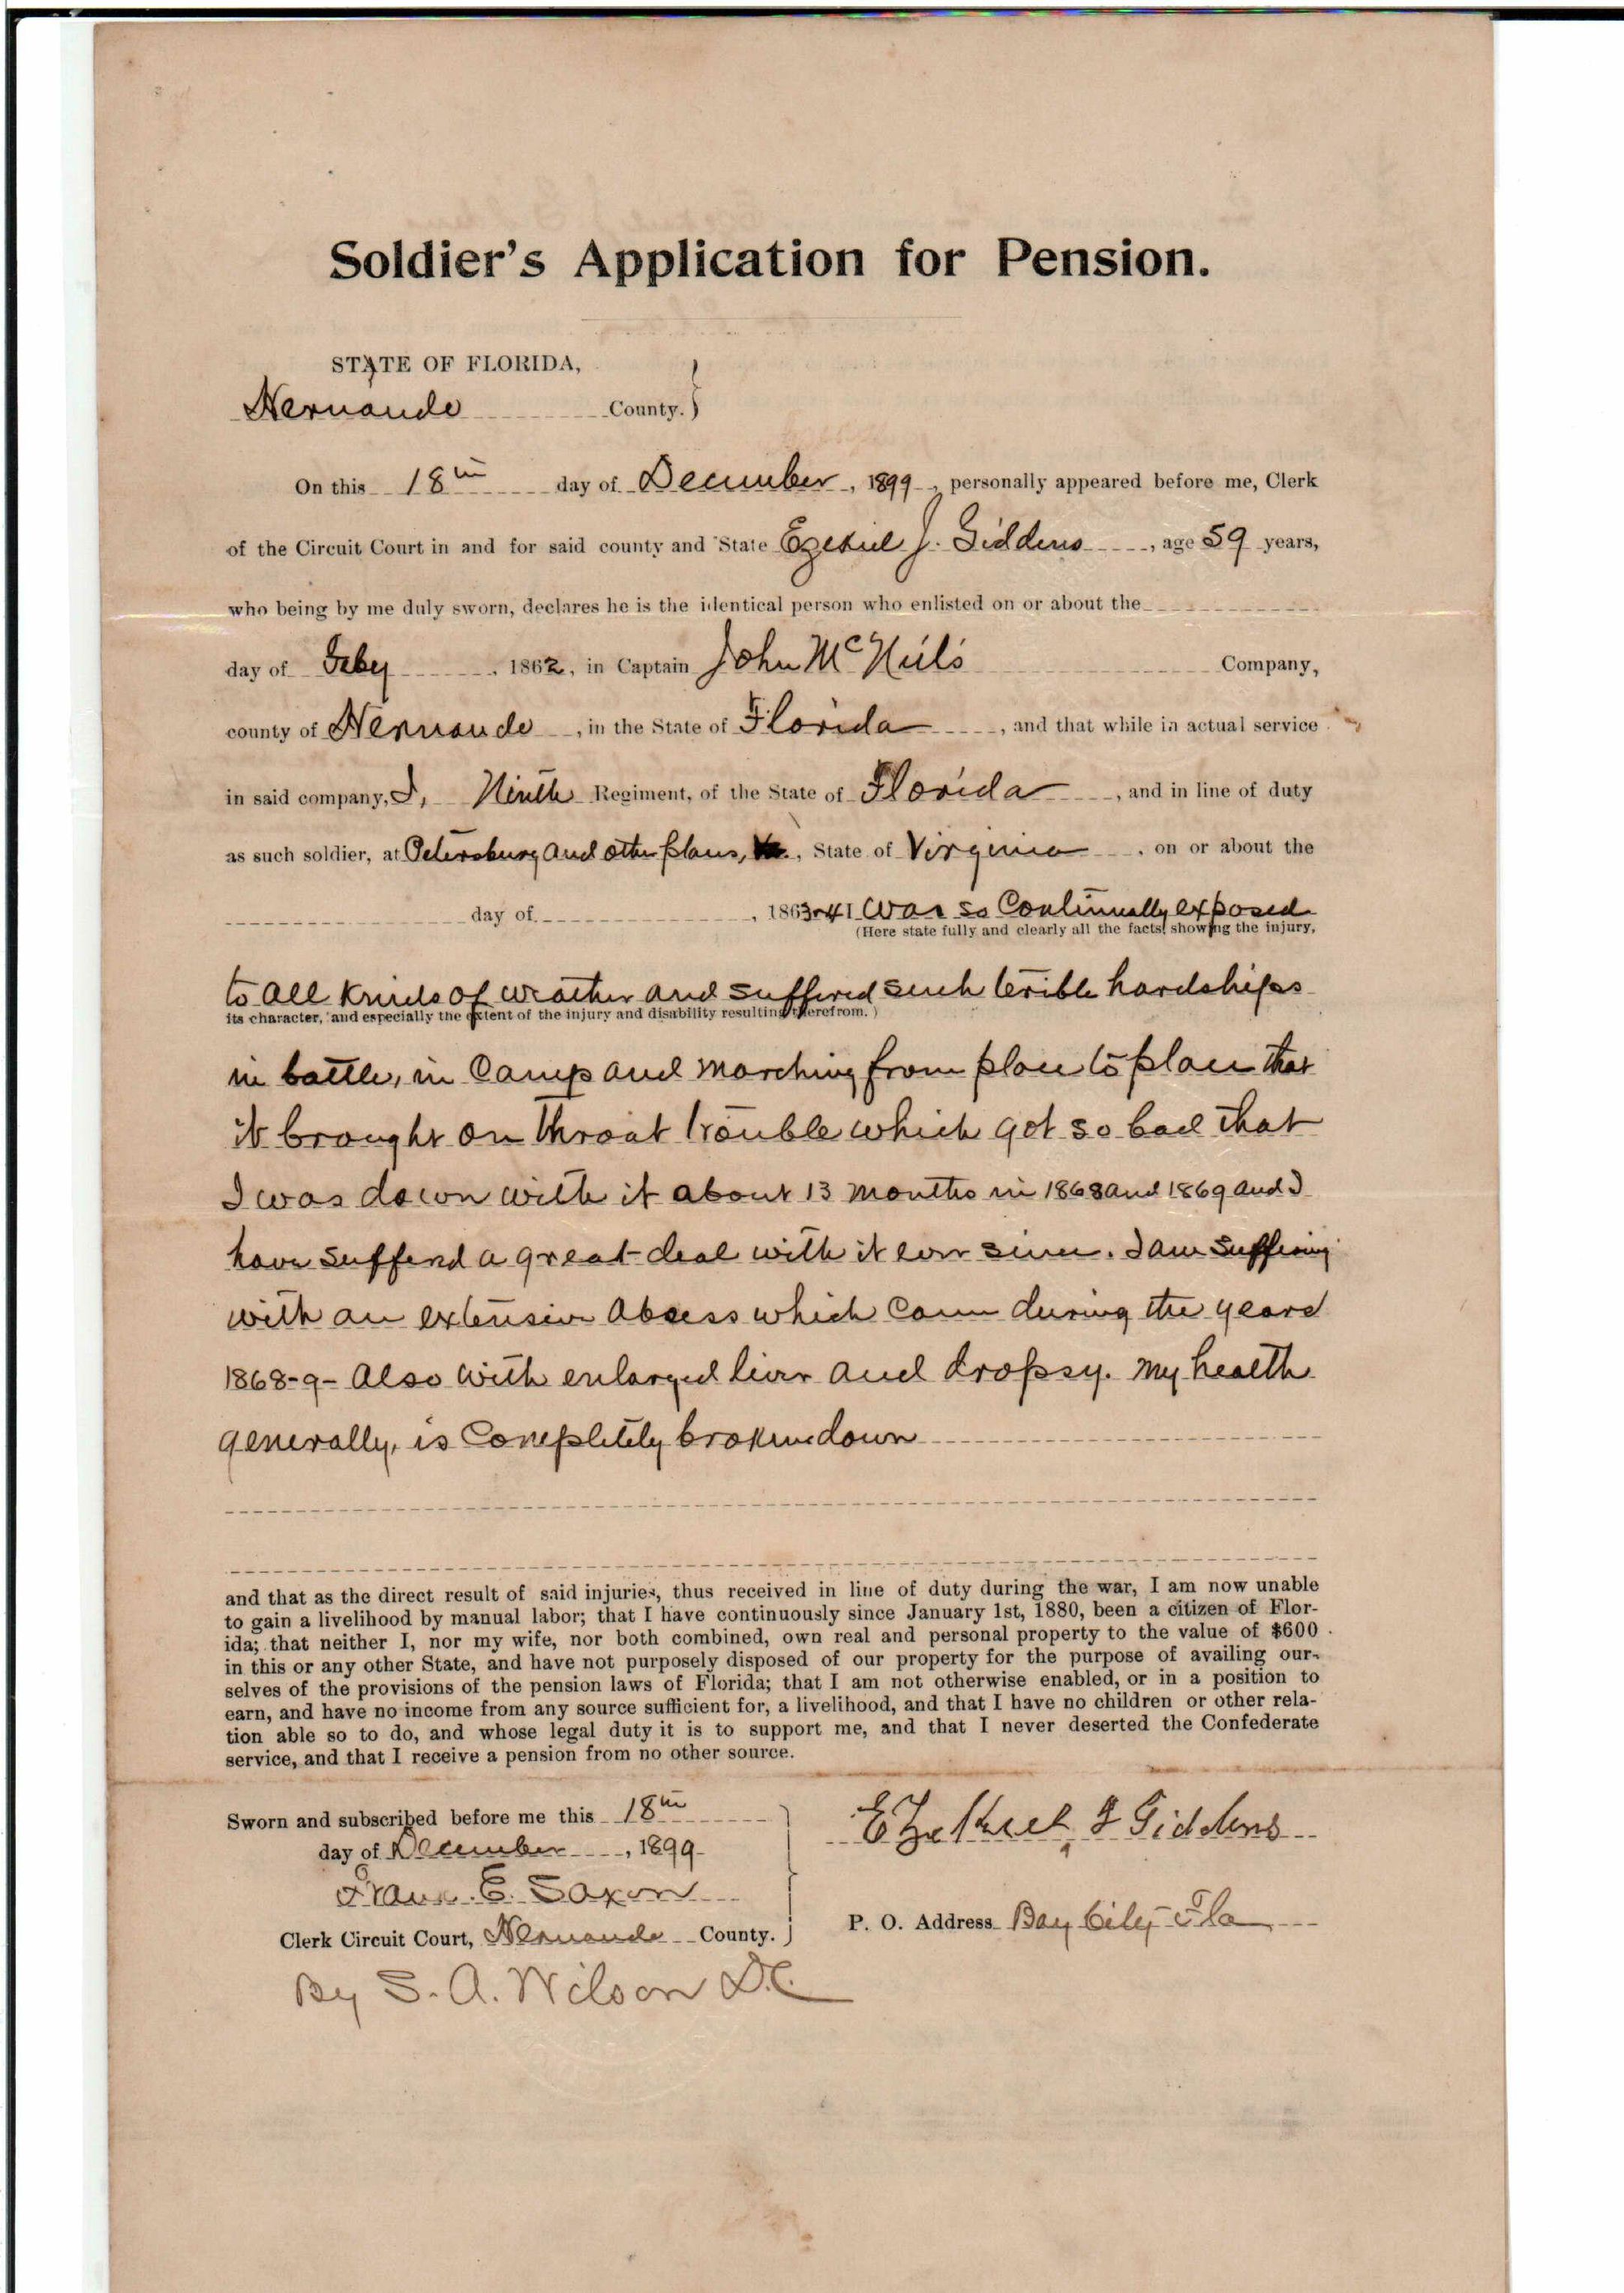 Soldier's Application for Pension.
STATE OF FLORIDA,
Hernando County.
On this 18th day of December, 1899, personally appeared before me, Clerk
of the Circuit Court in and for said county and State Ezekiel J. Giddens, age 59 years,
who being by me duly sworn, declares he is the identical person who enlisted on or about the
day of Feby, 1862, in Captain John McNeil's Company,
county of Hernando, in the State of Florida, and that while in actual service
in said company, I, Ninth Regiment, of the State of Florida, and in line of duty
as such soldier, at Petersburg and other places, State of Virginia, on or about the
day of , 1863-4 I was so Continually exposed
(Here state fully and clearly all the facts, showing the injury,
to all kinds of weather and suffered such terible hardships
its character, and especially the extent of the injury and disability resulting therefrom.)
in battle, in Camp and marching from place to place that
it brought on throat trouble which got so bad that
I was down with it about 13 months in 1868 and 1869 and I
have suffered a great deal with it ever since. I am suffering
with an extensive Absess which Came during the years
1868-9- Also with enlarged liver and dropsy. My health
generally, is Completely broken down
and that as the direct result of said injuries, thus received in line of duty during the war, I am now unable
to gain a livelihood by manual labor; that I have continuously since January 1st, 1880, been a citizen of Flor-
ida; that neither I, nor my wife, nor both combined, own real and personal property to the value of $600
in this or any other State, and have not purposely disposed of our property for the purpose of availing our-
selves of the provisions of the pension laws of Florida; that I am not otherwise enabled, or in a position to
earn, and have no income from any source sufficient for, a livelihood, and that I have no children or other rela-
tion able so to do, and whose legal duty it is to support me, and that I never deserted the Confederate
service, and that I receive a pension from no other source.
Sworn and subscribed before me this 18th
day of December, 1899
Frank E. Saxon
Clerk Circuit Court, Hernando County.
By S. A. Wilson D.C.
EZekiel J Giddens
P. O. Address Bay City Fla